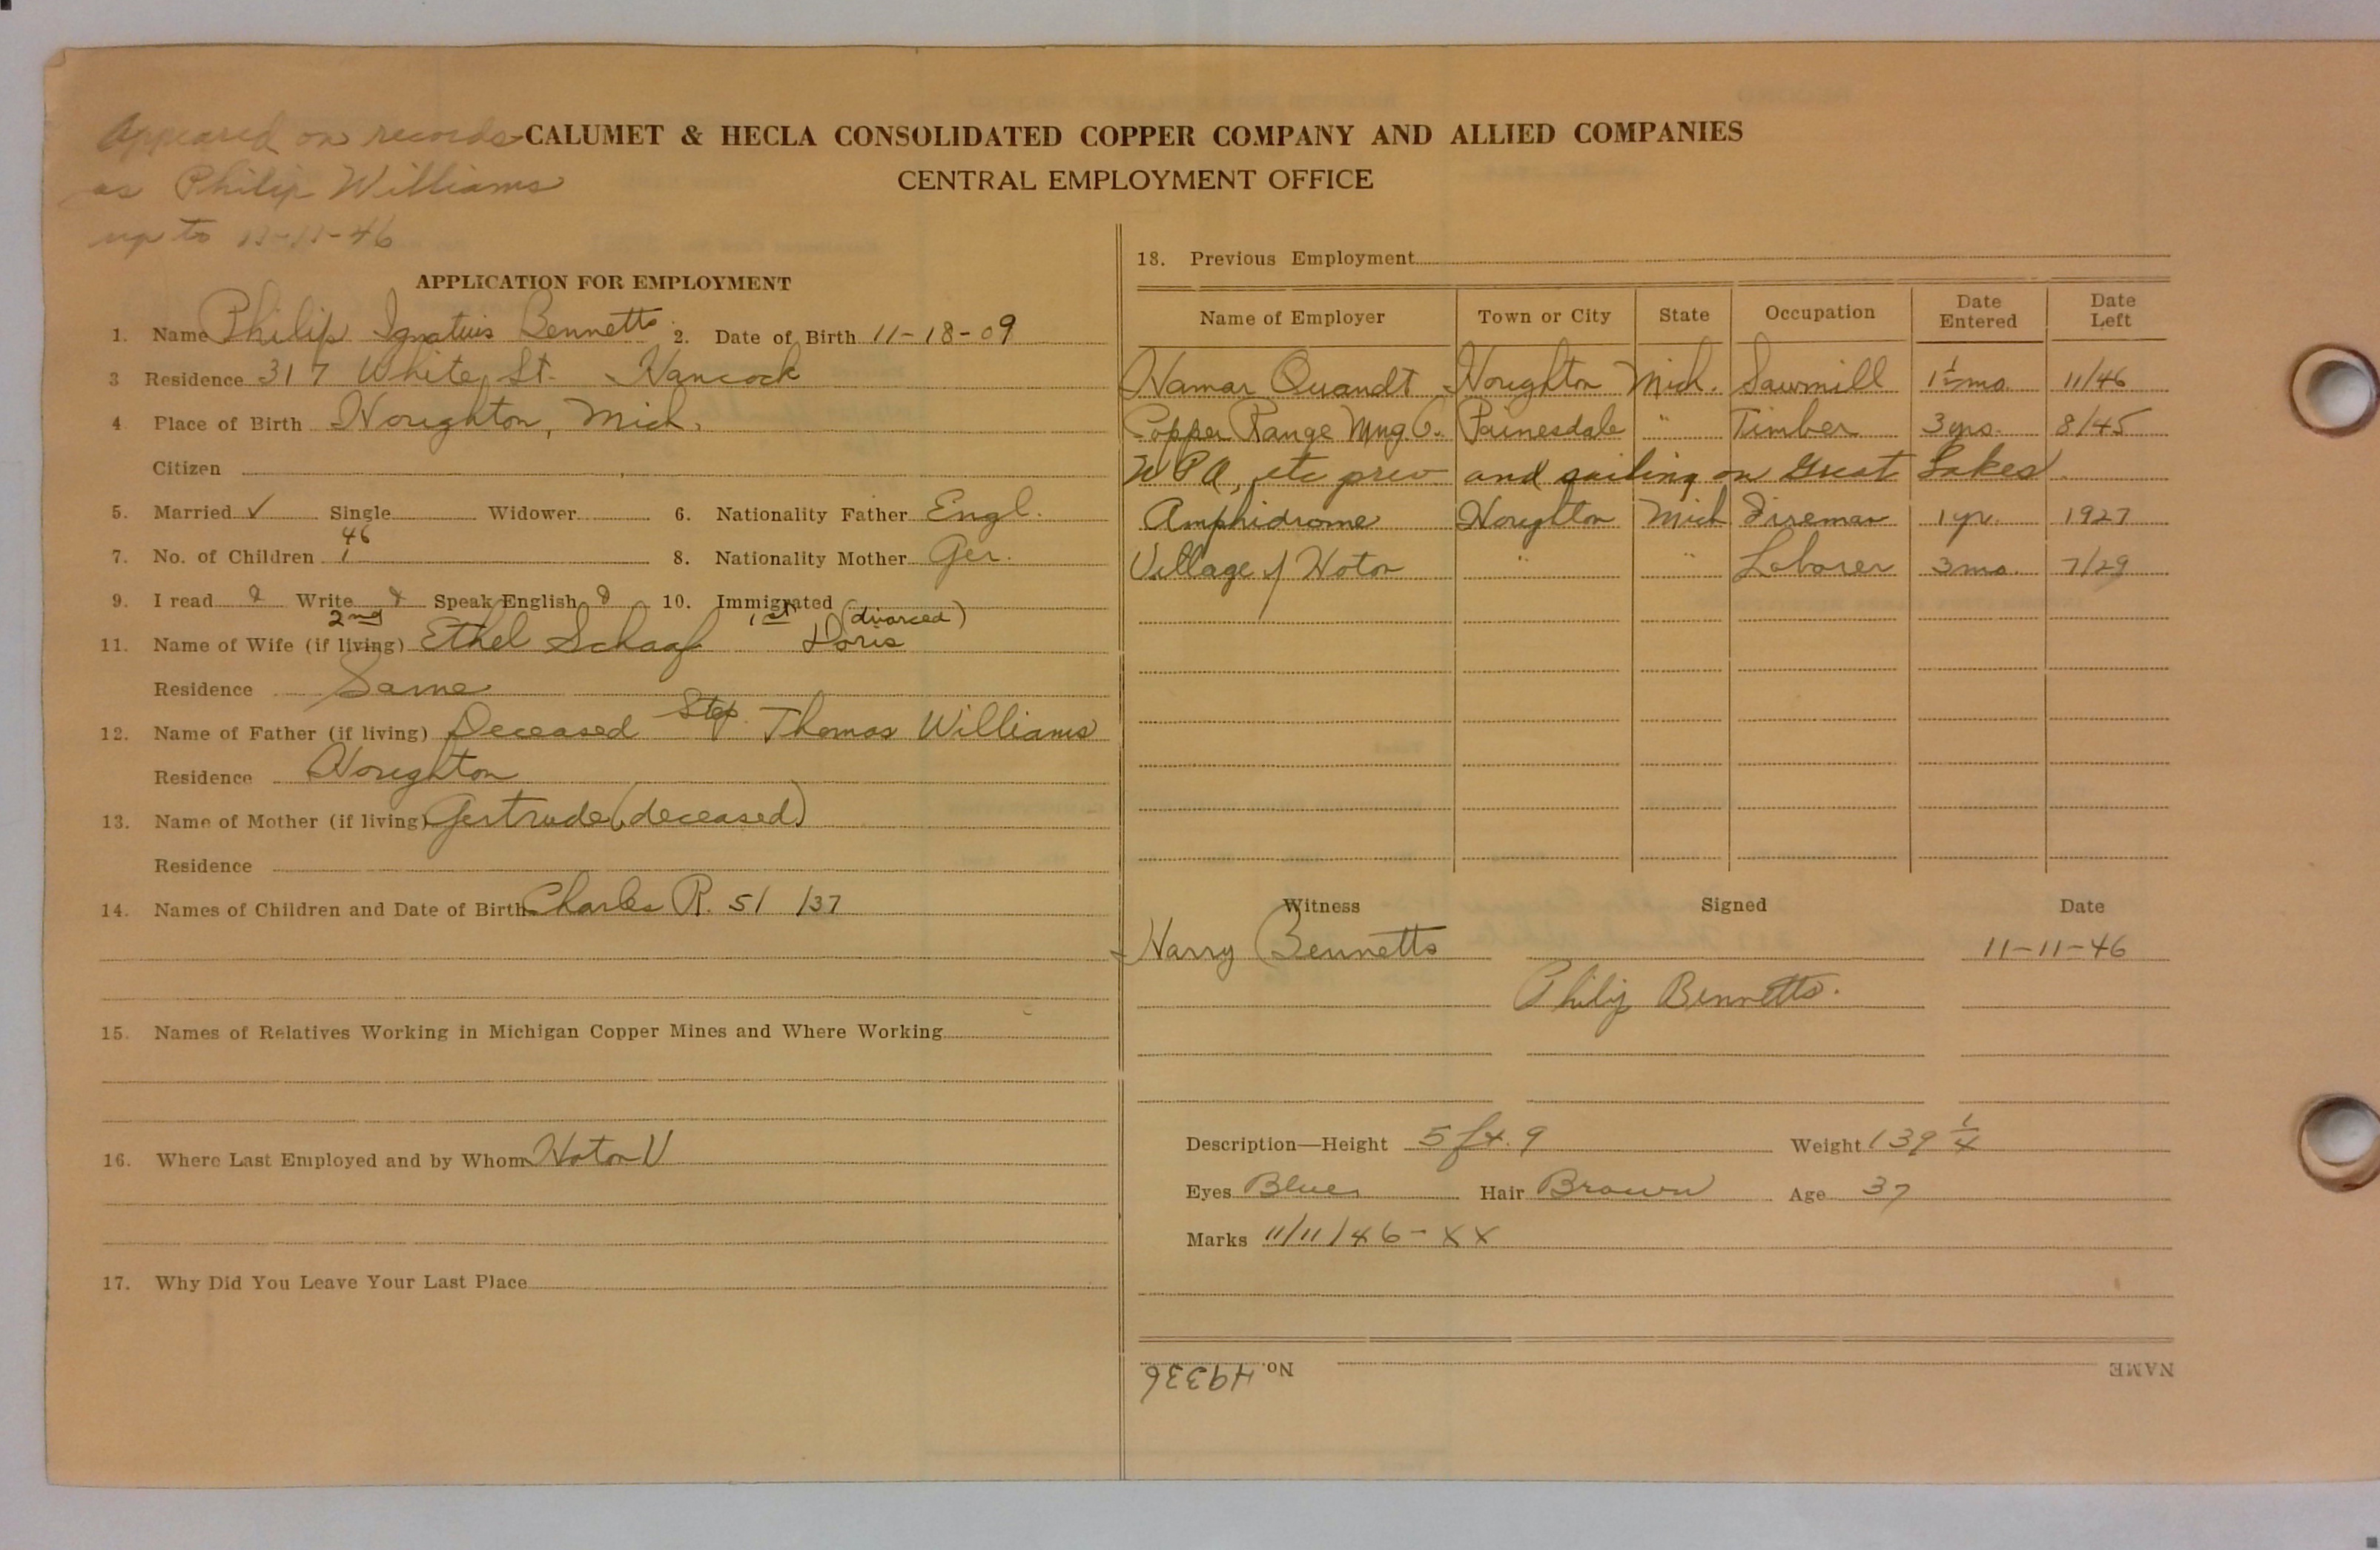 Appeared on records
as Philip Williams
up to 11-11-46
CALUMET & HECLA CONSOLIDATED COPPER COMPANY AND ALLIED COMPANIES
CENTRAL EMPLOYMENT OFFICE
APPLICATION FOR EMPLOYMENT
1. Name Philip Ignatius Bennetts 2. Date of Birth 11-18-09
3 Residence 317 White St. Hancock
4. Place of Birth Houghton, Mich.
Citizen
5. Married ✓ Single Widower 6. Nationality Father Engl.
46
7. No. of Children 1 8. Nationality Mother Ger.
9. I read Write Speak English 10. Immigrated
2nd 1st (divorced)
11. Name of Wife (if living) Ethel Schaaf Doris
Residence Same
12. Name of Father (if living) Deceased Step Thomas Williams
Residence Houghton
13. Name of Mother (if living) Gertrude (deceased)
Residence
14. Names of Children and Date of Birth Charles R. 5/ /37
15. Names of Relatives Working in Michigan Copper Mines and Where Working
16. Where Last Employed and by Whom Hoton V
17. Why Did You Leave Your Last Place
18. Previous Employment
Name of Employer Town or City State Occupation Date Entered Date Left
Hamar Quandt Houghton Mich. Sawmill 1½ mo. 11/46
Copper Range Mng. Co. Painesdale " Timber 3 yrs. 8/45
WPA, etc prev and sailing on Great Lakes.
Amphidrome Houghton Mich Fireman 1 yr. 1927
Village of Hoton " " Laborer 3 mo. 7/29
Witness Signed Date
Harry Bennetts 11-11-46
Philip Bennetts.
Description—Height 5 ft. 9 Weight 139 ¼
Eyes Blue Hair Brown Age 37
Marks 11/11/46 - XX
NAME No. 49336